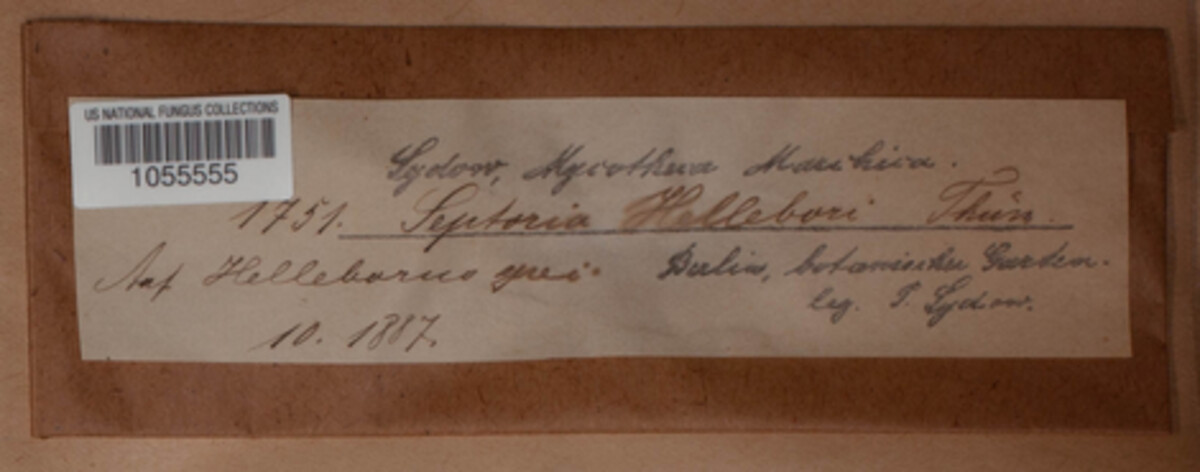 US NATIONAL FUNGUS COLLECTIONS
1055555
Sydow, Mycotheca Marchica.
1751. Septoria Hellebori Thüm.
Auf Helleborus
Berlin, botanischer Garten.
leg. P. Sydow.
10. 1887.